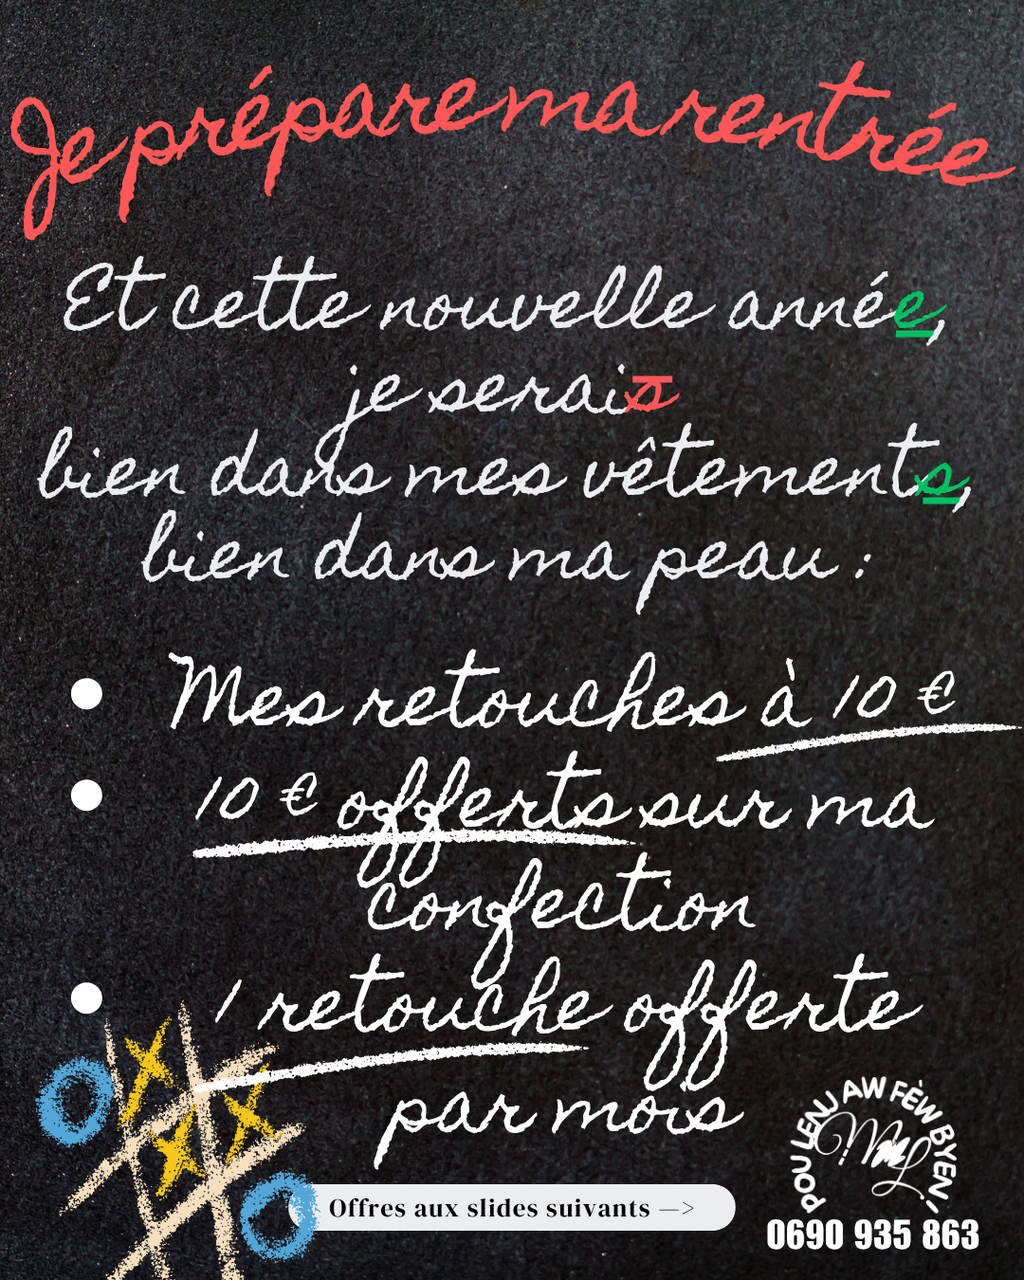 Je prépare ma rentrée
Et cette nouvelle année,
je serais
bien dans mes vêtements,
bien dans ma peau :
• Mes retouches à 10 €
• 10 € offerts sur ma
confection
• 1 retouche offerte
par mois
Offres aux slides suivants —>
POU LENJ AW FÈW BYEN
0690 935 863